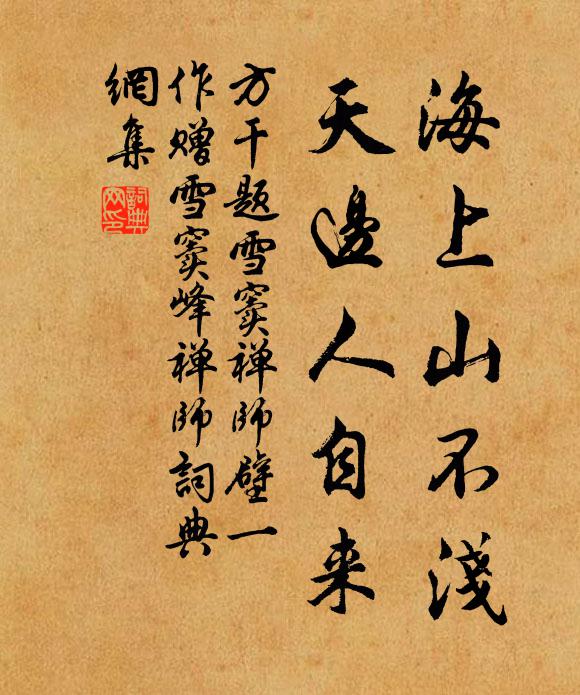 海上山不淺
天邊人自来
方干题雪窦禅师壁一
作赠雪窦峰禅师詞典
網集
詞典
网印